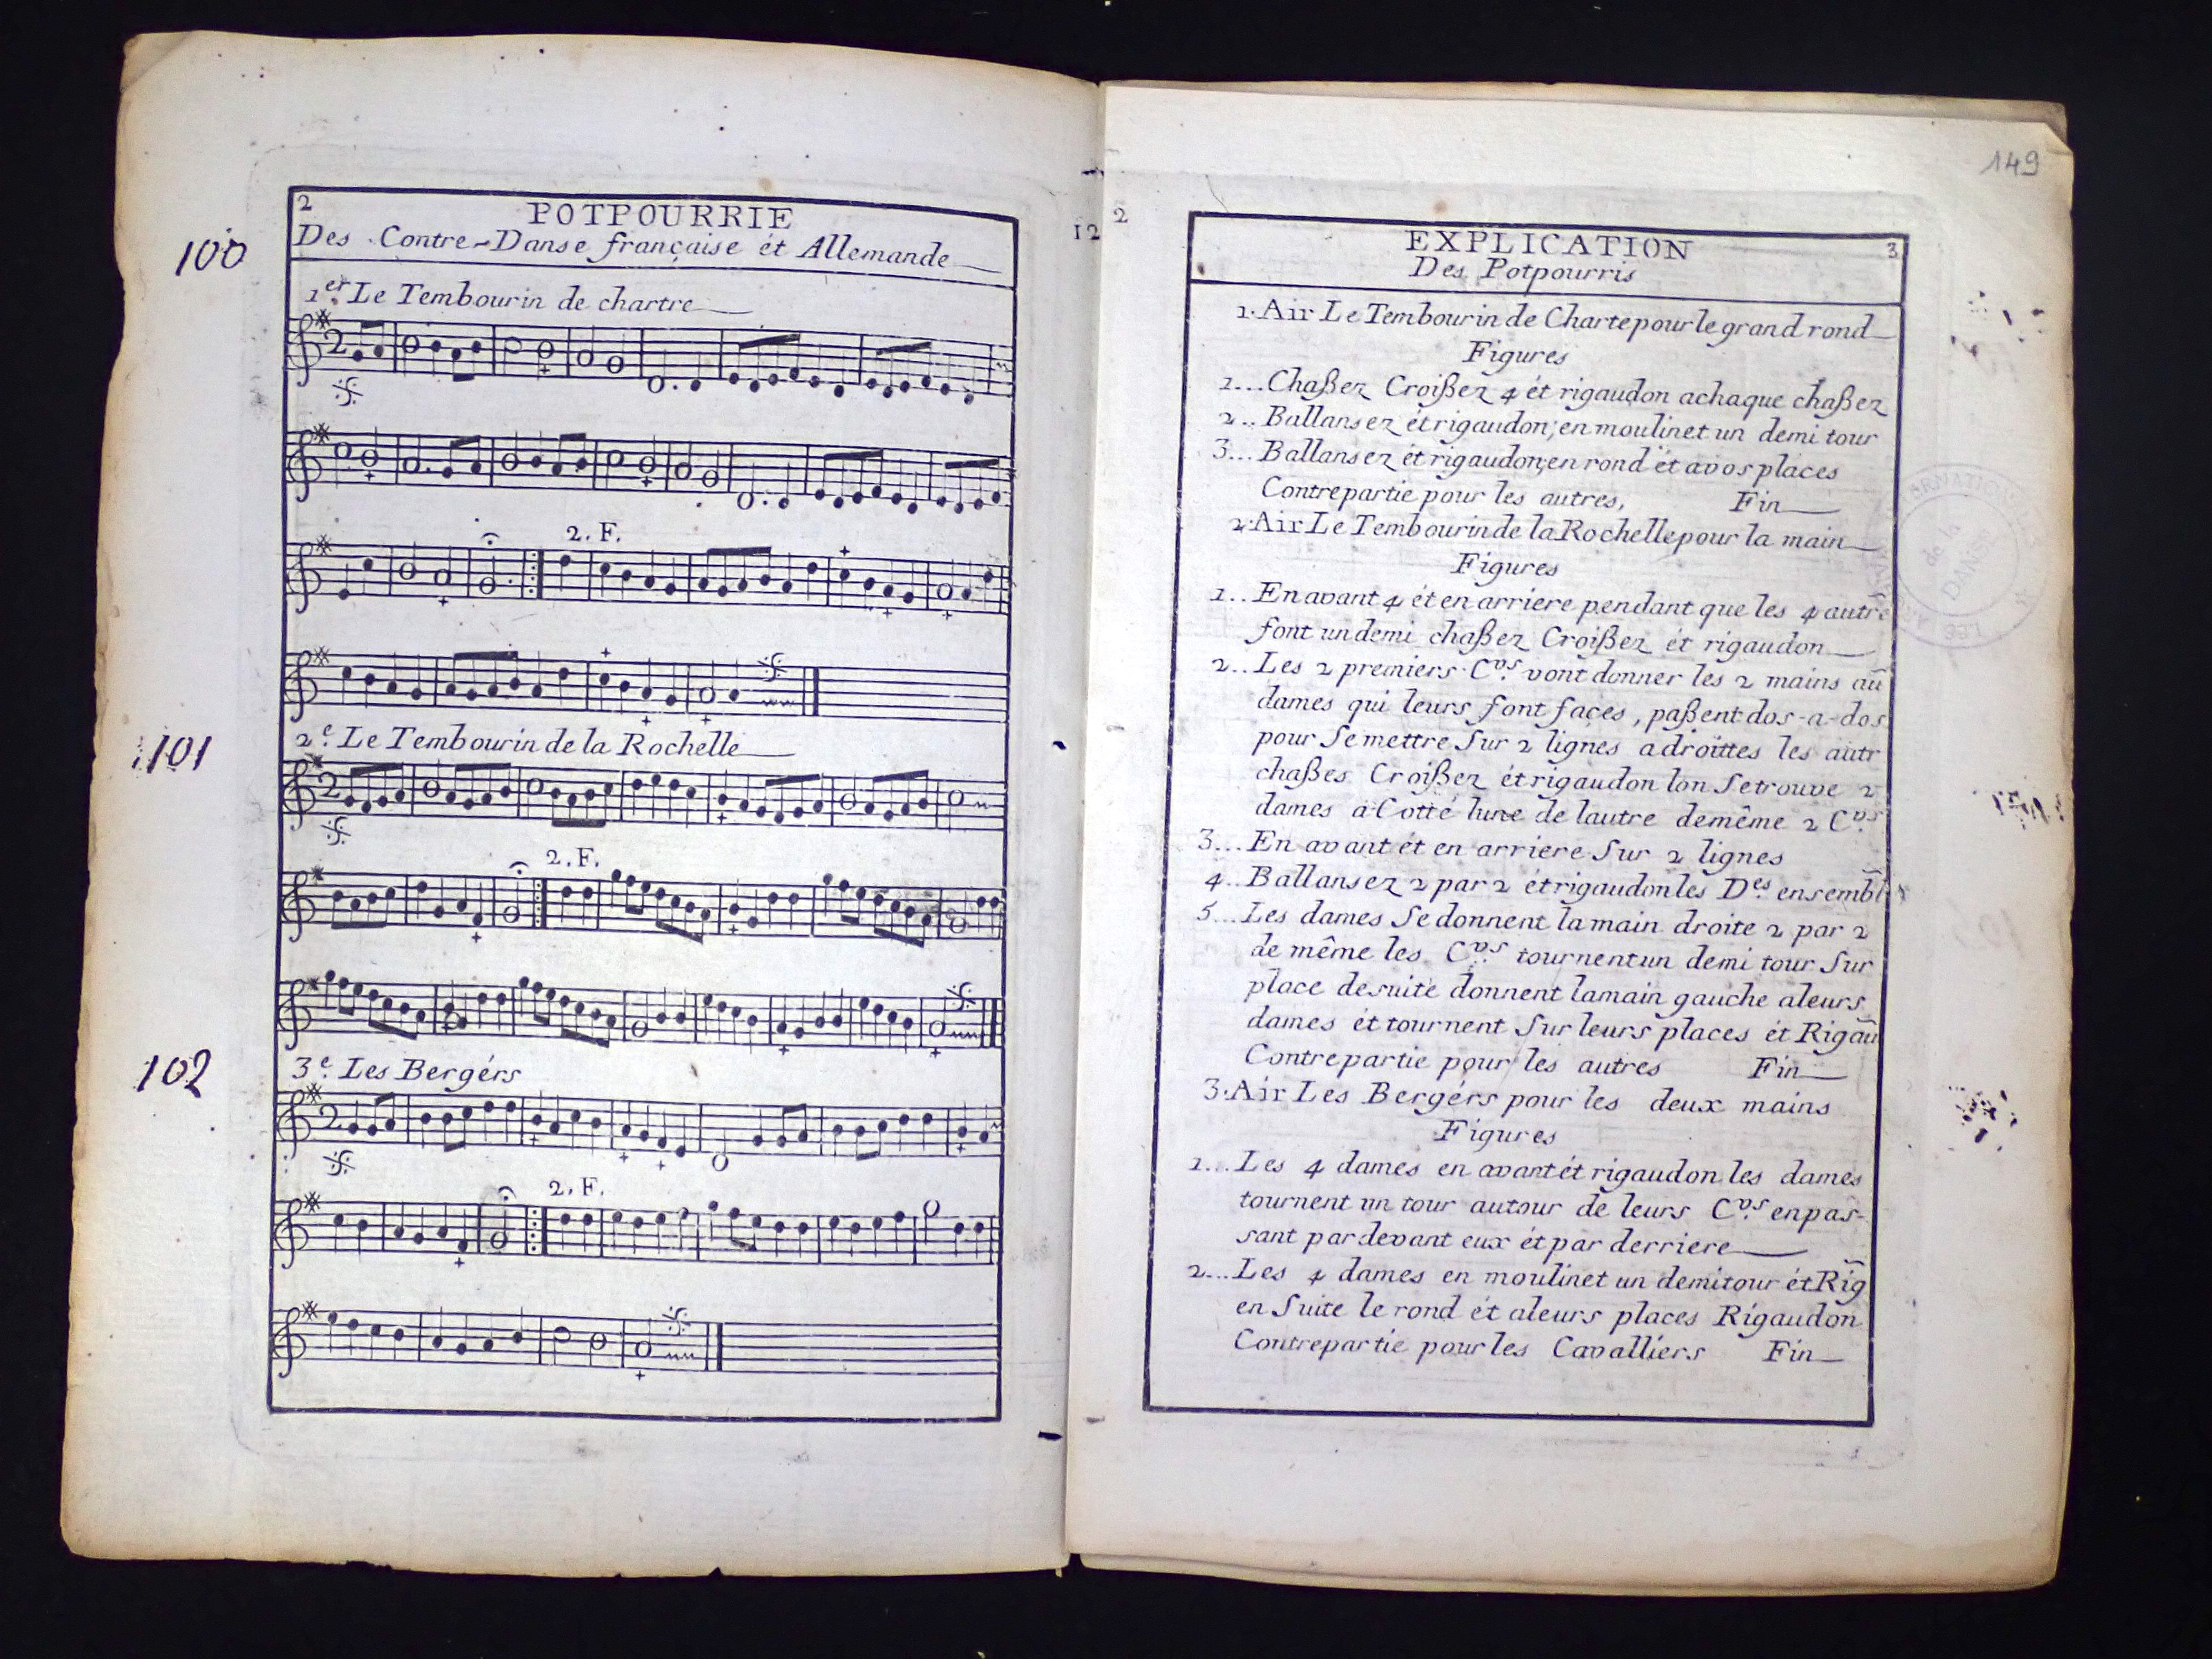 100
2
POTPOURRIE
Des Contre-Danse française ét Allemande
1er Le Tembourin de chartre
2
2. F.
101
2e. Le Tembourin de la Rochelle
2
2. F.
102
3e. Les Bergérs
2
2. F.
12
2
149
EXPLICATION
3
Des Potpourris
1. Air Le Tembourin de Charte pour le grand rond
Figures
1... Chaßez Croißez 4 ét rigaudon a chaque chaßez
2.. Ballansez ét rigaudon; en moulinet un demi tour
3... Ballansez ét rigaudon; en rond ét a vos places
Contrepartie pour les autres, Fin
2. Air Le Tembourin de la Rochelle pour la main
Figures
1.. En avant 4 ét en arriere pendant que les 4 autre
font un demi chaßez Croißez ét rigaudon
2.. Les 2 premiers C.vrs vont donner les 2 mains au
dames qui leurs font façes, paßent dos-a-dos
pour Se mettre Sur 2 lignes a droittes les autr
chaßes Croißez ét rigaudon lon Se trouve 2
dames a Cotté lune de lautre demême 2 C.vrs
3... En avant ét en arriere Sur 2 lignes
4.. Ballansez 2 par 2 ét rigaudon les D.es ensembl
5... Les dames Se donnent la main droite 2 par 2
de même les C.vrs tournent un demi tour Sur
place desuite donnent lamain gauche a leurs
dames ét tournent Sur leurs places ét Rigau
Contrepartie pour les autres Fin
3. Air Les Bergérs pour les deux mains
Figures
1... Les 4 dames en avant ét rigaudon les dames
tournent un tour autour de leurs C.vrs en pas-
sant par devant eux ét par derriere
2... Les 4 dames en moulinet un demi tour ét Rig
en Suite le rond ét a leurs places Rigaudon
Contrepartie pour les Cavalliers Fin